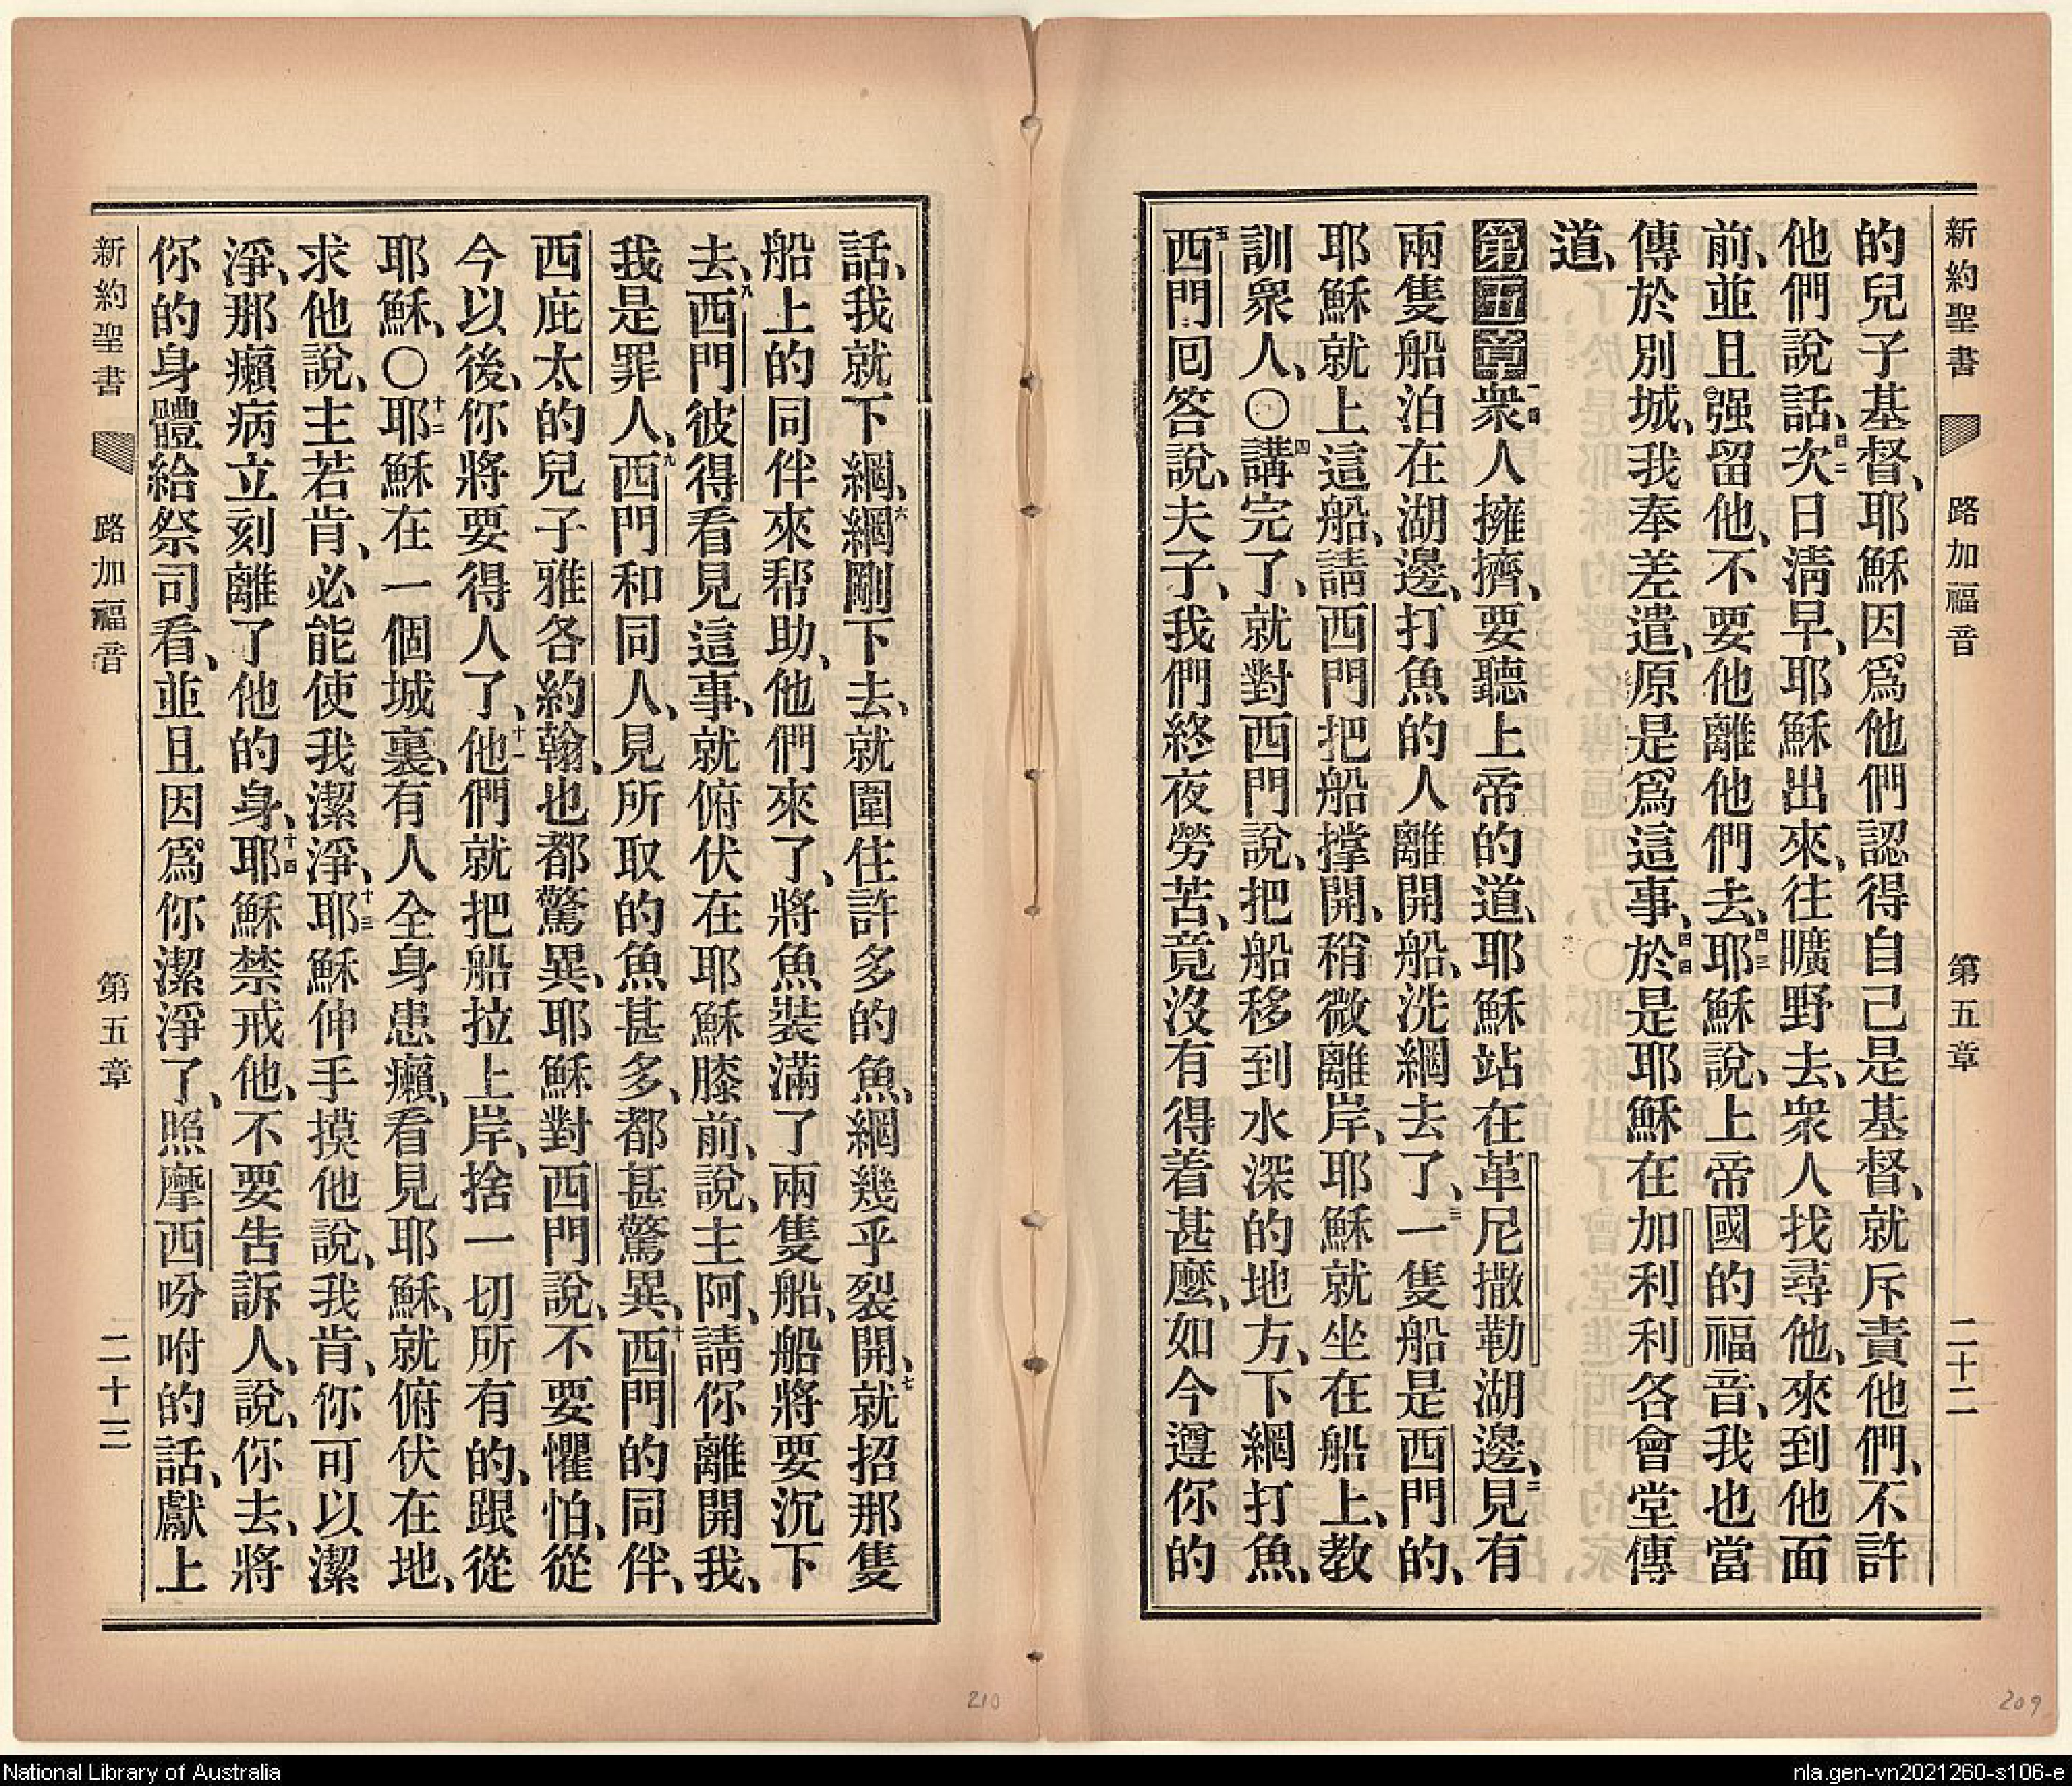 新約聖書 路加福音 第五章 二十二
的兒子基督、耶穌因爲他們認得自己是基督、就斥責他們、不許
他們說話、四二次日淸早、耶穌出來、往曠野去、衆人找尋他、來到他面
前、並且强留他、不要他離他們去、四三耶穌說、上帝國的福音、我也當
傳於別城、我奉差遣、原是爲這事、四四於是耶穌在加利利各會堂傳
道、
第五章 一衆人擁擠、要聽上帝的道、耶穌站在革尼撒勒湖邊、二見有
兩隻船泊在湖邊、打魚的人離開船、洗網去了、三一隻船是西門的、
耶穌就上這船、請西門把船撐開、稍微離岸、耶穌就坐在船上、教
訓衆人、〇四講完了、就對西門說、把船移到水深的地方、下網打魚、
五西門囘答說、夫子、我們終夜勞苦、竟沒有得着甚麼、如今遵你的
話、我就下網、六網剛下去、就圍住許多的魚、網幾乎裂開、七就招那隻
船上的同伴來帮助、他們來了、將魚裝滿了兩隻船、船將要沉下
去、九西門彼得看見這事、就俯伏在耶穌膝前、說、主阿、請你離開我、
我是罪人、九西門和同人、見所取的魚甚多、都甚驚異、十西門的同伴、
西庇太的兒子雅各約翰、也都驚異、耶穌對西門說、不要懼怕、從
今以後、你將要得人了、十一他們就把船拉上岸、捨一切所有的、跟從
耶穌、〇十二耶穌在一個城裏、有人全身患癩、看見耶穌、就俯伏在地、
求他說、主若肯、必能使我潔淨、十三耶穌伸手摸他說、我肯、你可以潔
淨、那癩病立刻離了他的身、十四耶穌禁戒他、不要告訴人、說、你去、將
你的身體給祭司看、並且因爲你潔淨了、照摩西吩咐的話、獻上
新約聖書 路加福音 第五章 二十三
210
209
National Library of Australia
nla.gen-vn2021260-s106-e